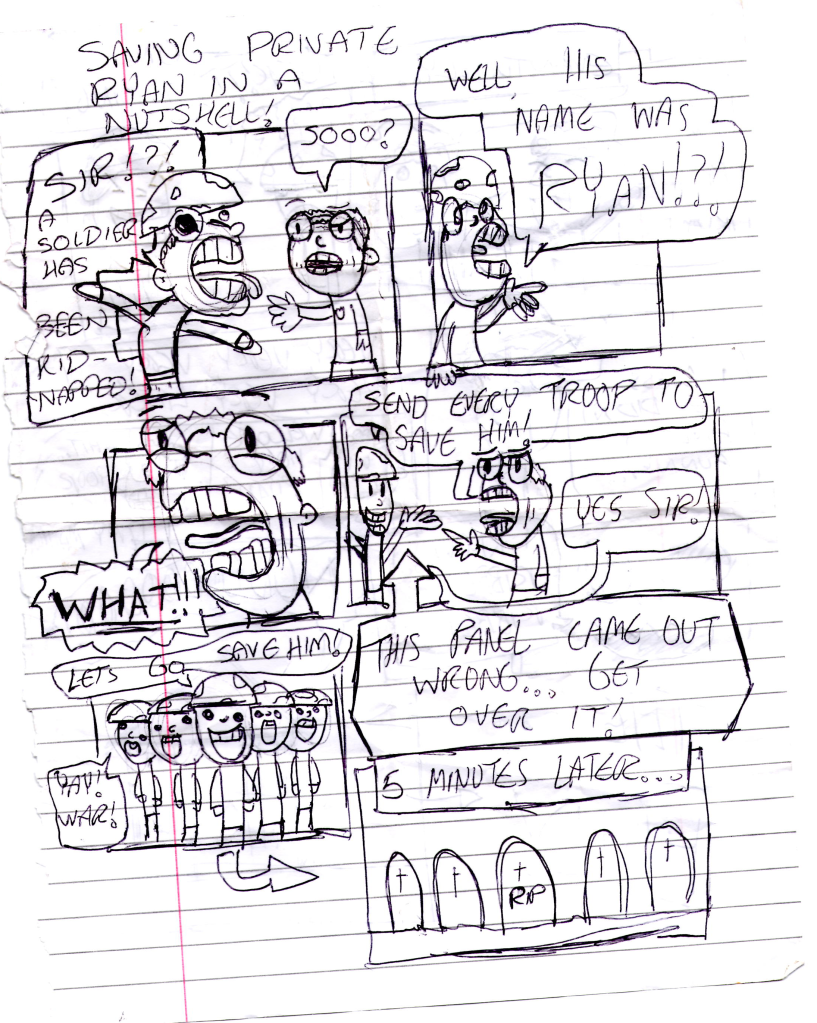 SAVING PRIVATE
RYAN IN A
NUTSHELL!
SIR!?!
A
SOLDIER
HAS
BEEN
KID-
NAPPED!
SOOO?
WELL, HIS
NAME WAS
RYAN!?!
WHAT!!!
SEND EVERY TROOP TO
SAVE HIM!
YES SIR!
THIS PANEL CAME OUT
WRONG... GET
OVER IT!
LETS GO SAVE HIM!
YAY!
WAR!
5 MINUTES LATER...
RIP